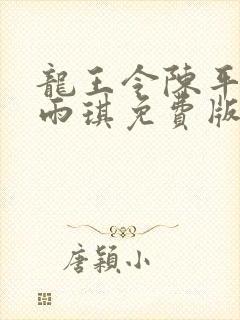 龍王令陳平
雨琪免費版
唐穎小